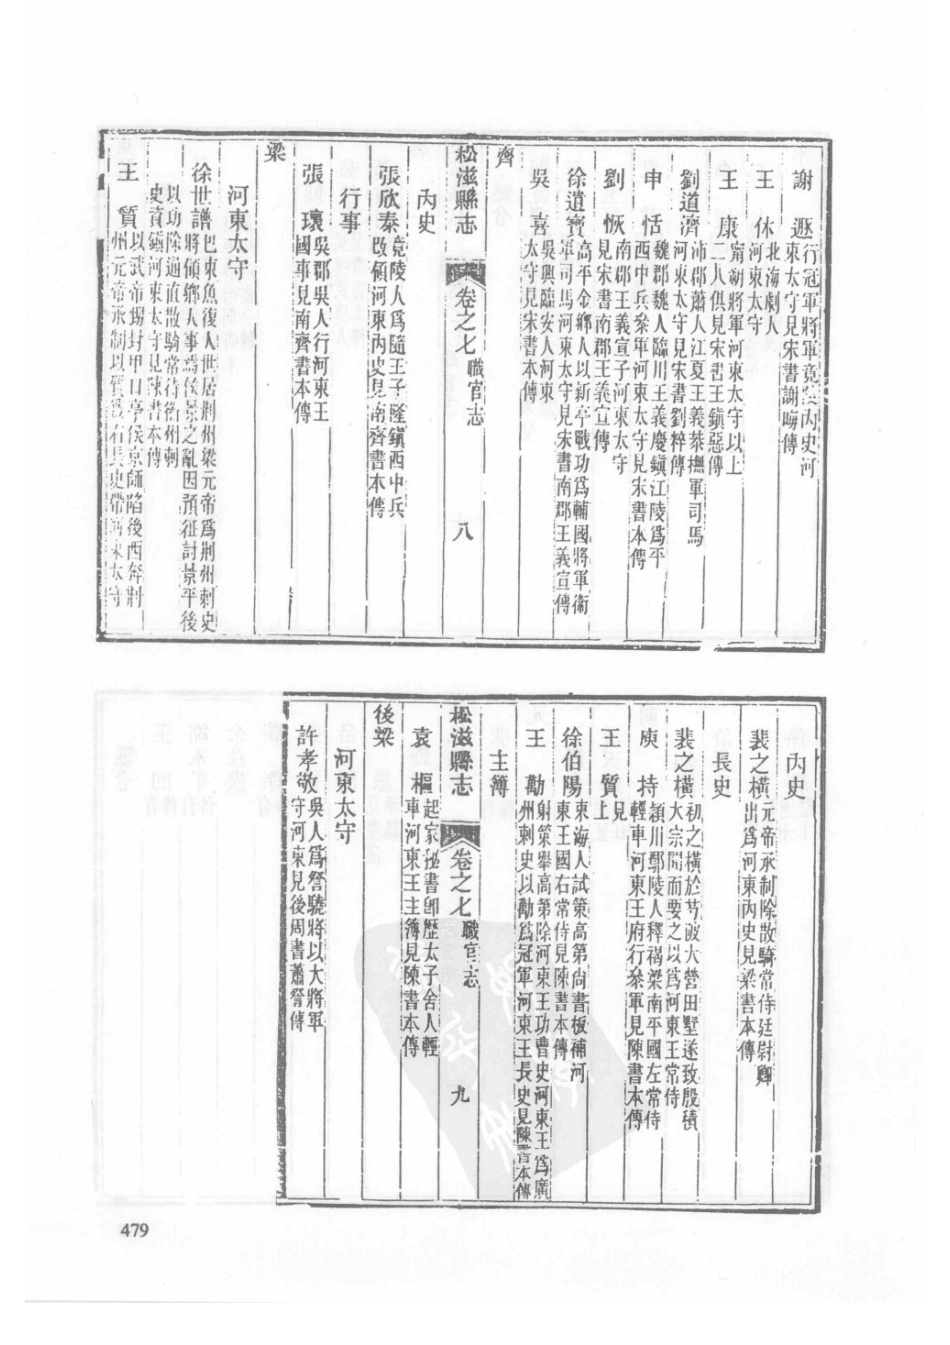 謝遯行冠軍將軍竟陵內史河
東太守見宋書謝晦傳
王休北海劇人
河東太守
王康寧朔將軍河東太守以上
二人俱見宋書王鎮惡傳
劉道濟沛郡蕭人江夏王義恭撫軍司馬
河東太守見宋書劉粹傳
申恬魏郡魏人臨川王義慶鎮江陵爲平
西中兵參軍河東太守見宋書本傳
劉恢南郡王義宣子河東太守
見宋書南郡王義宣傳
徐遺寶高平金鄉人以新亭戰功爲輔國將軍衛
軍司馬河東太守見宋書南郡王義宣傳
吳喜吳興臨安人河東
太守見宋書本傳
齊
松滋縣志 卷之七 職官志 八
內史
張欣泰竟陵人爲隨王子隆鎮西中兵
改領河東內史見南齊書本傳
行事
張瓌吳郡吳人行河東王
國事見南齊書本傳
梁
河東太守
徐世譜巴東魚復人世居荆州梁元帝爲荆州刺史
將領鄉人事焉侯景之亂因預征討景平後
以功除通直散騎常侍衡州刺
史資鎮河東太守見陳書本傳
王質以武帝甥封甲口亭侯京師陷後西奔荆
州元帝承制以質爲右長史帶河東太守
內史
裴之橫元帝承制除散騎常侍廷尉卿
出爲河東內史見梁書本傳
長史
裴之橫初之橫於芍陂大營田墅遂致殷積
大宗聞而要之以爲河東王常侍
庾持潁川鄢陵人釋褐梁南平國左常侍
輕車河東王府行參軍見陳書本傳
王質見
上
徐伯陽東海人試策高第尚書板補河
東王國右常侍見陳書本傳
王勱射策舉高第除河東王功曹史河東王爲廣
州刺史以勱爲冠軍河東王長史見陳書本傳
主簿
松滋縣志 卷之七 職官志 九
袁樞起家祕書郎歷太子舍人輕
車河東王主簿見陳書本傳
後梁
河東太守
許孝敬吳人爲詧驍將以大將軍
守河東見後周書蕭詧傳
479